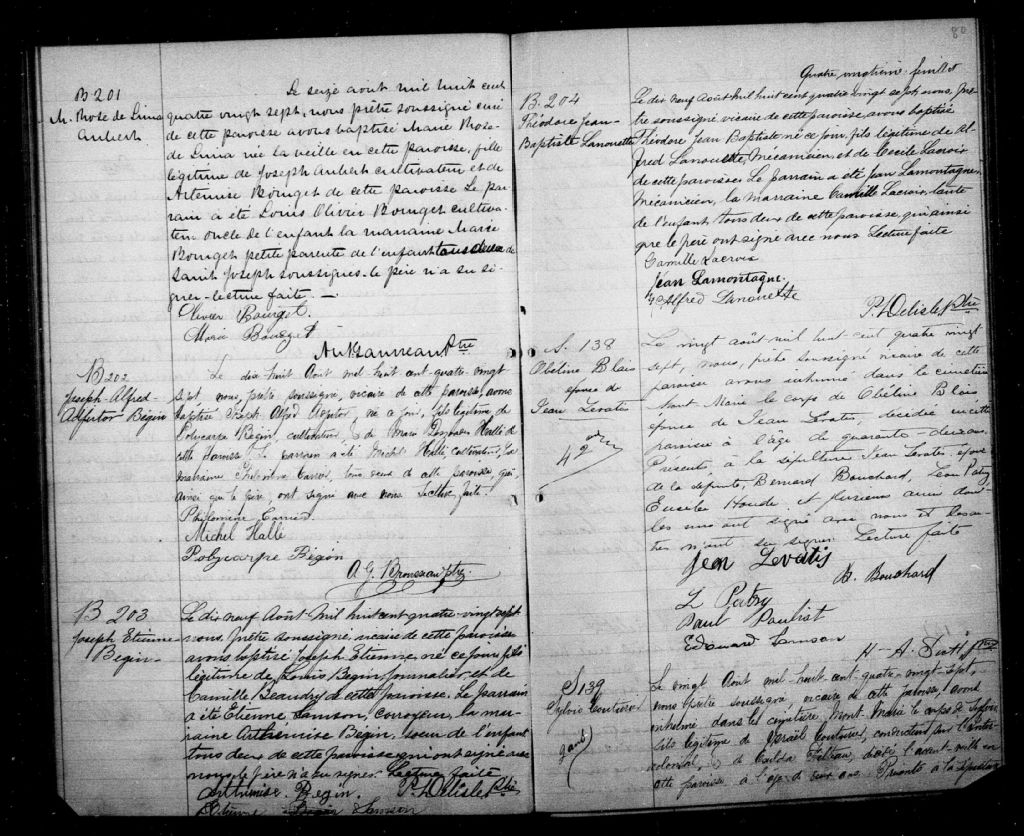 B 201
M. Rose de Lima
Aubert
Le seize août mil huit cent
quatre vingt sept, nous, prêtre soussigné curé
de cette paroisse avons baptisé Marie Rose
de Lima née la veille en cette paroisse, fille
légitime de Joseph Aubert cultivateur et de
Artémise Bourget de cette paroisse Le par
rain a été Louis Olivier Bourget cultiva
teur oncle de l'enfant la marraine Marie
Bourget petite parente de l'enfant tous deux de
Saint Joseph soussignés. le père n'a su si-
gner - lecture faite. —
Olivier Bourget.
Marie Bourget
Ptre
B 202
Joseph-Alfred-
Adjutor Bégin
Le dix huit Août mil huit cent-quatre-vingt
sept, nous, prêtre, soussigné, vicaire de cette paroisse, avons
baptisé Joseph Alfred Adjutor, né ce jour, fils légitime de
Polycarpe Bégin, cultivateur, & de Marie Hallé de
cette paroisse. Le parrain a été Michel Hallé, cultivateur, La
marraine Philomène Carrier, tous deux de cette paroisse, qui,
ainsi que le père, ont signé avec nous. Lecture faite.
Philomène Carrier.
Michel Hallé
Polycarpe Bégin
A G. Brousseau Ptre
B 203
Joseph Etienne
Begin
Le dix neuf Août mil huit cent quatre-vingt sept
nous, prêtre soussigné, vicaire de cette paroisse
avons baptisé Joseph Etienne, né ce jour, fils
légitime de Louis Begin, journalier et de
Camille Beaudry de cette paroisse. Le parrain
a été Etienne Samson, corroyeur, la mar-
raine Arthemise Bégin, soeur de l'enfant
tous deux de cette paroisse qui ont signé avec
nous, le père n'a su signer. Lecture faite
Arthémise Begin. P. Delisle Ptre
Etienne Samson
80
Quatre vingtième feuillet
B. 204
Théodore Jean-
Baptiste Lanouette
Le dix neuf Août mil huit cent quatre vingt sept, nous, prê
tre soussigné vicaire de cette paroisse, avons baptisé
Théodore Jean Baptiste né ce jour, fils légitime de Al-
fred Lanouette, Mécanicien, et de Cécile Lacroix
de cette paroisse. Le parrain a été Jean Lamontagne,
Mécanicien, la marraine Camille Lacroix, tante
de l'enfant tous deux de cette paroisse, qui ainsi
que le père ont signé avec nous Lecture faite
Camille Lacroix
Jean Lamontagne.
Alfred Lanouette
P. Delisle Ptre
S. 138
Obéline Blais
epouse de
Jean Levates
42
Le vingt août mil huit cent quatre vingt
sept, nous, prêtre soussigné vicaire de cette
paroisse avons inhumé dans le cimetière
Mont Marie le corps de Obéline Blais
epouse de Jean Levates, décédée en cette
paroisse à l'âge de quarante deux ans.
Présents, à la sépulture Jean Levates, epoux
de la defunte, Bernard Bouchard, Léon Patry,
Eusèbe Houde et plusieurs amis dont
les uns ont signé avec nous et les au-
tres n'ont su signer. Lecture faite
Jean Levatis
B. Bouchard
L Patry
Paul Pauliot
Edouard Samson
H- A. Ptre
S 139
Sylvio Couture
Le vingt Août mil-huit-cent-quatre-vingt-sept,
nous prêtre soussigné, vicaire de cette paroisse, avons
inhumé dans le cimetière, Mont-Marie le corps de Sylvio,
fils légitime de Couture, conducteur sur l'Inter-
colonial, & de décédé l'avant-veille en
cette paroisse à l'âge de deux ans. Présents à la sépulture